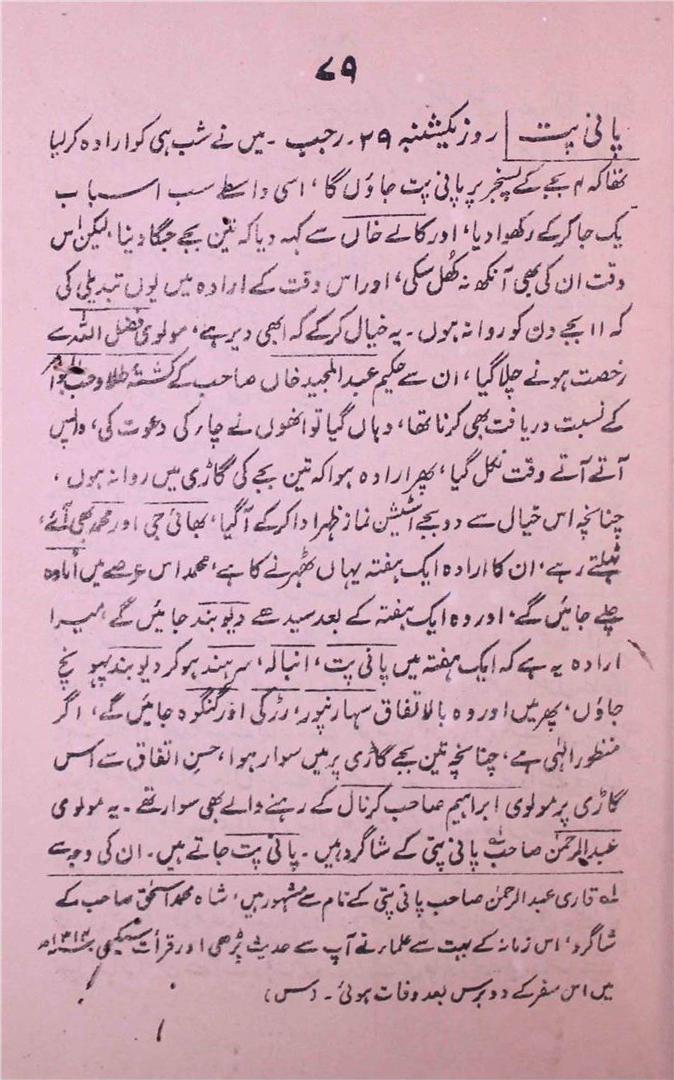 ۷۹
پانی پت | روز یکشنبہ ۲۹ ۔ رجب ۔ میں نے شب ہی کو ارادہ کر لیا
تھا کہ ۴ بجے کے پسنجر پر پانی پت جاؤں گا ، اسی واسطے سب اسباب
یک جا کر کے رکھوا دیا ، اور کالے خاں سے کہہ دیا کہ تین بجے جگا دینا ، لیکن اس
وقت ان کی بھی آنکھ نہ کھل سکی ، اور اس وقت کے ارادہ میں یوں تبدیلی کی
کہ ۱۱ بجے دن کو روانہ ہوں ۔ یہ خیال کر کے کہ ابھی دیر ہے ، مولوی فضل اللہ سے
رخصت ہونے چلا گیا ، ان سے حکیم عبد المجید خاں صاحب کے کشتۂ طلا و
کے نسبت دریافت بھی کرنا تھا ، وہاں گیا تو انھوں نے چار کی دعوت کی ، واپس
آتے آتے وقت نکل گیا ، پھر ارادہ ہوا کہ تین بجے کی گاڑی میں روانہ ہوں ،
چنانچہ اس خیال سے دو بجے اسٹیشن نماز ظہر ادا کر کے آگیا ، بھائی جی اور محمد بھی آئے ،
ٹہلتے رہے ، ان کا ارادہ ایک ہفتہ یہاں ٹھہرنے کا ہے ، محمد اس عرصے میں
چلے جائیں گے ، اور وہ ایک ہفتہ کے بعد سیدھے دیوبند جائیں گے ، میرا
ارادہ یہ ہے کہ ایک ہفتہ میں پانی پت ، انبالہ ، سرہند ہو کر دیوبند پہونچ
جاؤں ، پھر میں اور وہ بالاتفاق سہارنپور ، رڑکی اور گنگوہ جائیں گے ، اگر
منظور الٰہی ہے ، چنانچہ تین بجے گاڑی پر میں سوار ہوا ، حسنِ اتفاق سے اس
گاڑی پر مولوی ابراہیم صاحب کرنال کے رہنے والے بھی سوار تھے ۔ یہ مولوی
عبد الرحمٰن صاحبؒ پانی پتی کے شاگرد ہیں ۔ پانی پت جاتے ہیں ۔ ان کی وجہ سے
لہ قاری عبد الرحمٰن صاحب پانی پتی کے نام سے مشہور ہیں ، شاہ محمد اسحٰق صاحب کے
شاگرد ، اس زمانہ کے بہت سے علماء نے آپ سے حدیث پڑھی اور قرأت سیکھی
میں اس سفر کے دو برس بعد وفات ہوئی ۔ (س)